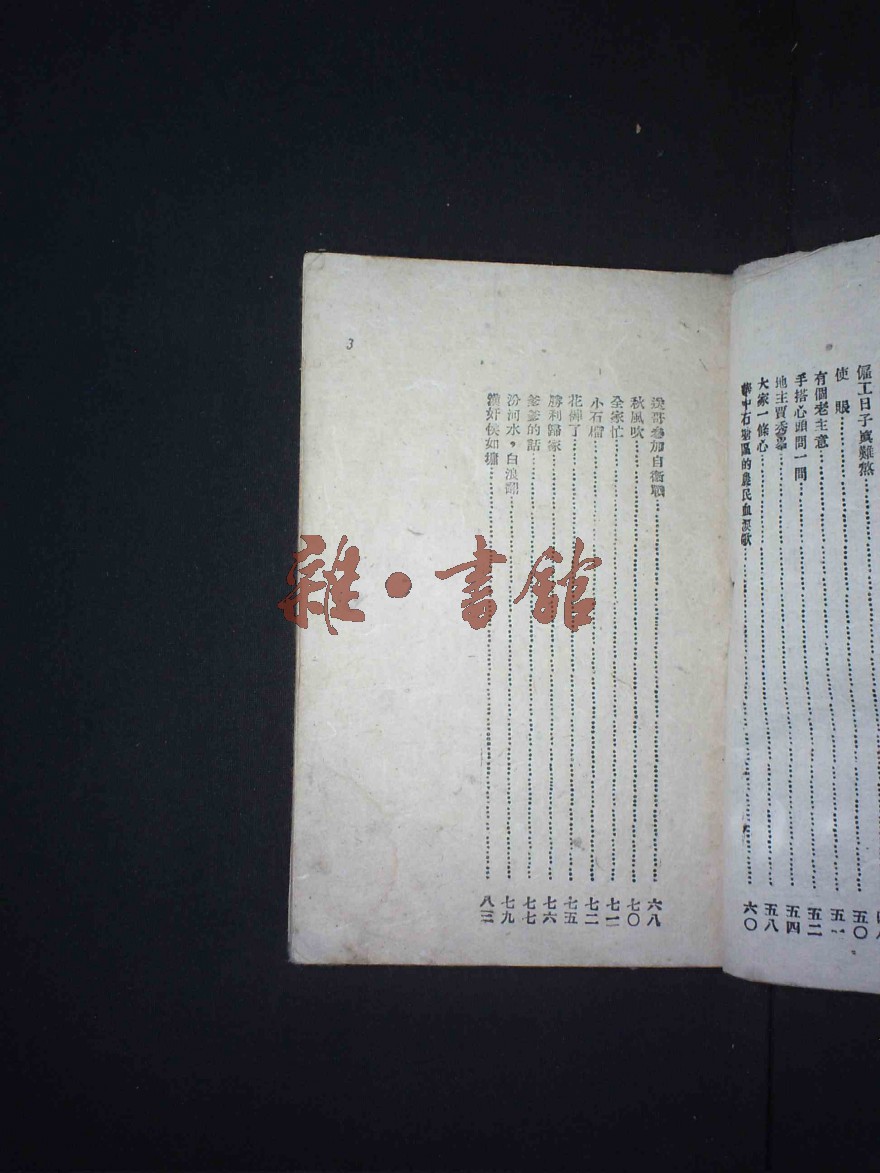 僱工日子眞難熬
五〇
使賬
五一
有個老主意
五二
手搭心頭問一問
五四
地主賈秀
五八
大家一條心
六〇
區的農民血淚歌
3
送哥參加自衞戰
六八
秋風吹
七〇
全家忙
七一
小石榴
七二
花轎了
七五
勝利歸家
七六
爹爹的話
七七
汾河水，白浪翻
七九
漢奸侯如墉
八三
雜·書館